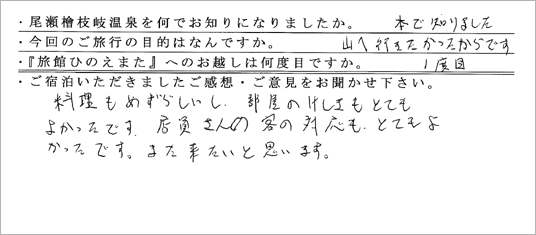 ・尾瀬檜枝岐温泉を何でお知りになりましたか。 本で知りました
・今回のご旅行の目的はなんですか。 山へ行きたかったからです
・『旅館ひのえまた』へのお越しは何度目ですか。 1度目
・ご宿泊いただきましたご感想・ご意見をお聞かせ下さい。
料理もめずらしいし、部屋のけしきもとても
よかったです。店員さんの客の対応も、とてもよ
かったです。また来たいと思います。